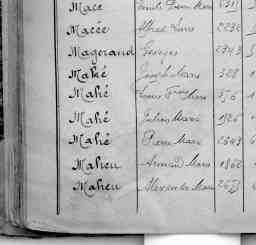 Macé Emile Jean Marie 2311
Macée Alfred Louis 2236
Magerand Georges 2943
Mahé Joseph Marie 328
Mahé Louis Franç Marie 376
Mahé Julien Marie 1926
Mahé Pierre Marie 2643
Maheu Armand Marie 1862
Maheu Alexandre Marie